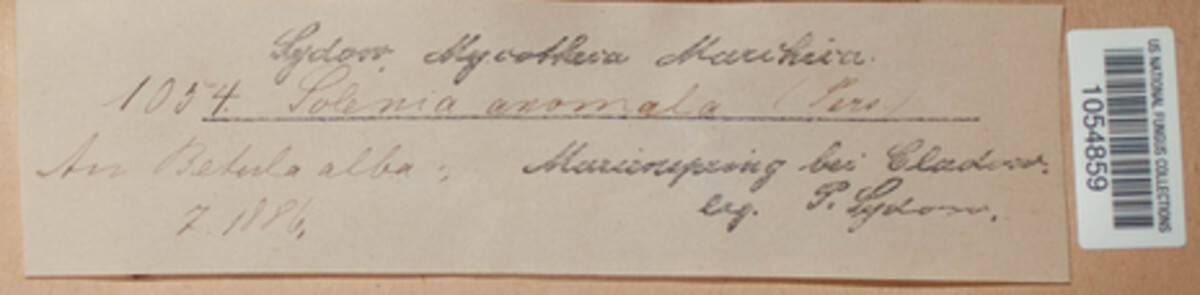 Sydow, Mycotheca Marchica.
1054. Solenia anomala (Pers.)
An Betula alba; Marienspring bei Cladow.
7. 1886. leg. P. Sydow.
US NATIONAL FUNGUS COLLECTIONS
01054859